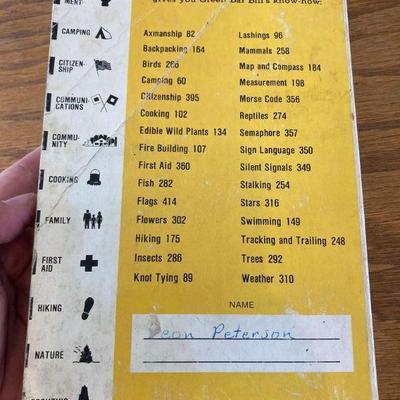 MENT
gives you Green Bar Bill's know-how:
CAMPING
CITIZEN-
SHIP
COMMUNI-
CATIONS
COMMU-
NITY
COOKING
FAMILY
FIRST
AID
HIKING
NATURE
Axmanship 82
Backpacking 164
Birds 266
Camping 60
Citizenship 395
Cooking 102
Edible Wild Plants 134
Fire Building 107
First Aid 360
Fish 282
Flags 414
Flowers 302
Hiking 175
Insects 286
Knot Tying 89
Lashings 96
Mammals 258
Map and Compass 184
Measurement 198
Morse Code 356
Reptiles 274
Semaphore 357
Sign Language 350
Silent Signals 349
Stalking 254
Stars 316
Swimming 149
Tracking and Trailing 248
Trees 292
Weather 310
NAME
Leon Peterson